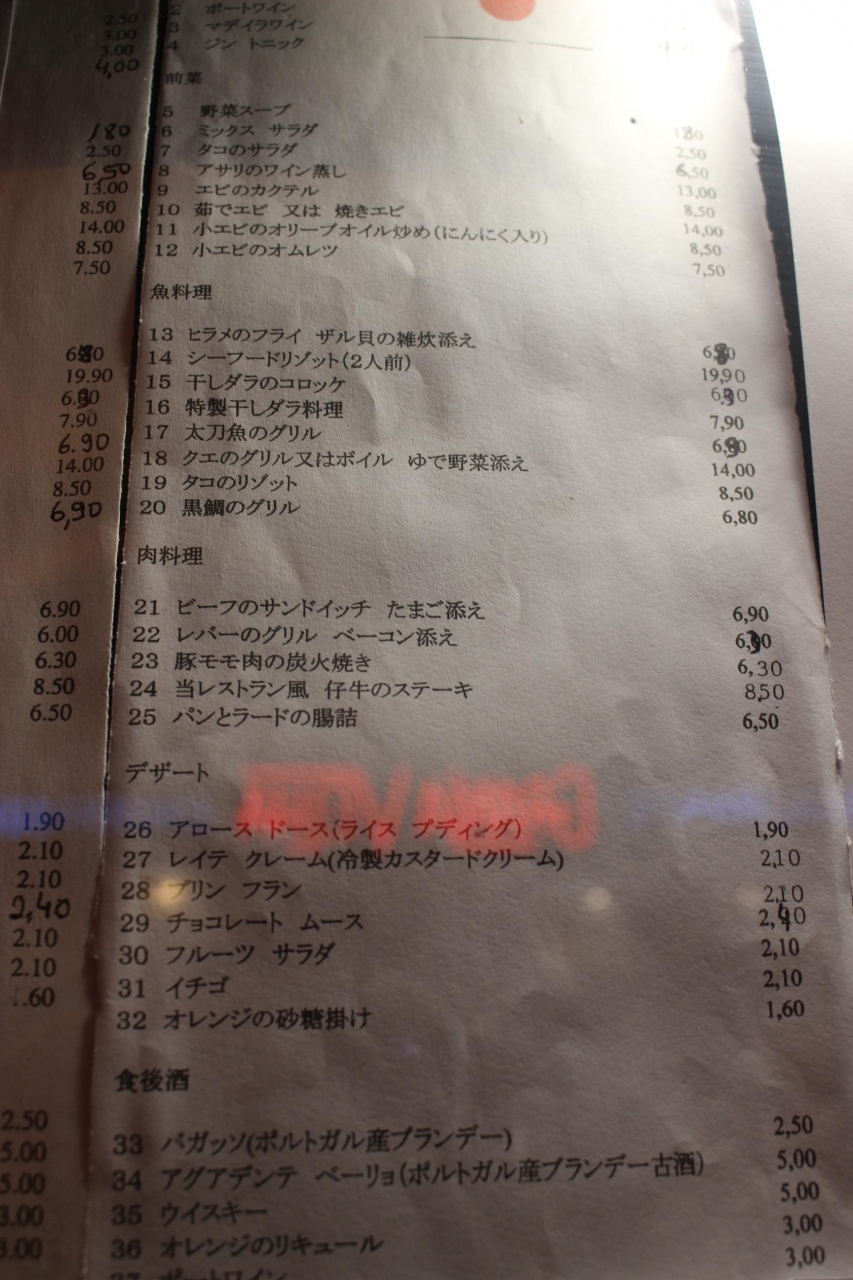 2.50 2 ポートワイン
3.00 3 マデイラワイン
3.00 4 ジン トニック
4,00
前菜
5 野菜スープ
180 6 ミックス サラダ 180
2.50 7 タコのサラダ 2,50
6,50 8 アサリのワイン蒸し 6,50
13.00 9 エビのカクテル 13,00
8.50 10 茹でエビ 又は 焼きエビ 8,50
14.00 11 小エビのオリーブオイル炒め(にんにく入り) 14,00
8.50 12 小エビのオムレツ 8,50
7.50 7,50
魚料理
13 ヒラメのフライ ザル貝の雑炊添え
6.80 14 シーフードリゾット(2人前) 6,80
19.90 15 干しダラのコロッケ 19,90
6.90 16 特製干しダラ料理 6,90
7.90 17 太刀魚のグリル 7,90
6.90 18 クエのグリル又はボイル ゆで野菜添え 6,90
14.00 19 タコのリゾット 14,00
8.50 20 黒鯛のグリル 8,50
6,90 6,80
肉料理
6.90 21 ビーフのサンドイッチ たまご添え 6,90
6.00 22 レバーのグリル ベーコン添え
6.30 23 豚モモ肉の炭火焼き 6,30
8.50 24 当レストラン風 仔牛のステーキ 8,50
6.50 25 パンとラードの腸詰 6,50
デザート
1.90 26 アロース ドース(ライス プディング) 1,90
2.10 27 レイテ クレーム(冷製カスタードクリーム) 2,10
2.10 28 プリン フラン 2,10
2,40 29 チョコレート ムース 2,40
2.10 30 フルーツ サラダ 2,10
2.10 31 イチゴ 2,10
.60 32 オレンジの砂糖掛け 1,60
食後酒
2.50 33 バガッソ(ポルトガル産ブランデー) 2,50
5.00 34 アグアデンテ ベーリョ(ポルトガル産ブランデー古酒) 5,00
5.00 35 ウイスキー 5,00
3.00 36 オレンジのリキュール 3,00
3.00 37 ポートワイン 3,00